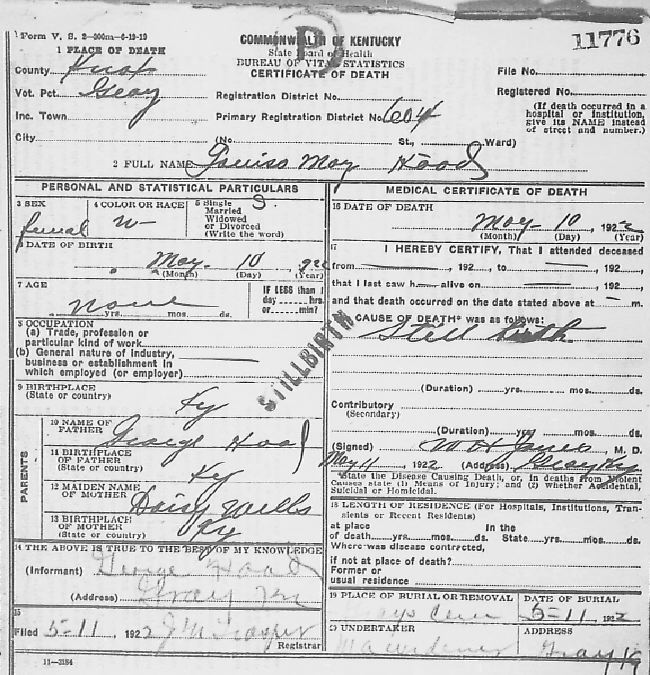 Form V. S. 2-200m-6-19-19
COMMONWEALTH OF KENTUCKY
State Board of Health
BUREAU OF VITAL STATISTICS
CERTIFICATE OF DEATH
11776
1 PLACE OF DEATH
County Knox
Vot. Pct. Gray
Inc. Town
City
Registration District No.
Primary Registration District No. 604
(No. St., Ward)
File No.
Registered No.
(If death occurred in a hospital or institution, give its NAME instead of street and number.)
2 FULL NAME Louisa May Hood
PERSONAL AND STATISTICAL PARTICULARS
3 SEX
femal
4 COLOR OR RACE
W
5 Single
Married
Widowed
or Divorced
(Write the word)
S
6 DATE OF BIRTH
May 10 922
(Month) (Day) (Year)
7 AGE
None
yrs. mos. ds.
IF LESS than 1
day hrs.
or min?
8 OCCUPATION
(a) Trade, profession or
particular kind of work
(b) General nature of industry,
business or establishment in
which employed (or employer)
STILLBIRTH
9 BIRTHPLACE
(State or country)
Ky
PARENTS
10 NAME OF
FATHER
George Hood
11 BIRTHPLACE
OF FATHER
(State or country)
Ky
12 MAIDEN NAME
OF MOTHER
Daisy Wells
13 BIRTHPLACE
OF MOTHER
(State or country)
Ky
14 THE ABOVE IS TRUE TO THE BEST OF MY KNOWLEDGE
(Informant) George Hood
(Address) Gray Ky
15
Filed 5-11, 1922
Registrar
11-3184
MEDICAL CERTIFICATE OF DEATH
16 DATE OF DEATH
May 10, 1922
(Month) (Day) (Year)
17 I HEREBY CERTIFY, That I attended deceased
from , 192 , to , 192 ,
that I last saw h alive on , 192 ,
and that death occurred on the date stated above at m.
CAUSE OF DEATH* was as follows:
Still Birth
(Duration) yrs. mos. ds.
Contributory
(Secondary)
(Duration) yrs. mos. ds.
(Signed) W H Jones, M. D.
May 11, 1922 (Address) Gray Ky
*State the Disease Causing Death, or, in deaths from Violent
Causes state (1) Means of Injury; and (2) whether Accidental,
Suicidal or Homicidal.
18 LENGTH OF RESIDENCE (For Hospitals, Institutions, Transients or Recent Residents)
at place In the
of death yrs. mos. ds. State yrs. mos. ds.
Where was disease contracted,
if not at place of death?
Former or
usual residence
19 PLACE OF BURIAL OR REMOVAL
DATE OF BURIAL
5-11, 1922
20 UNDERTAKER
ADDRESS
Gray Ky